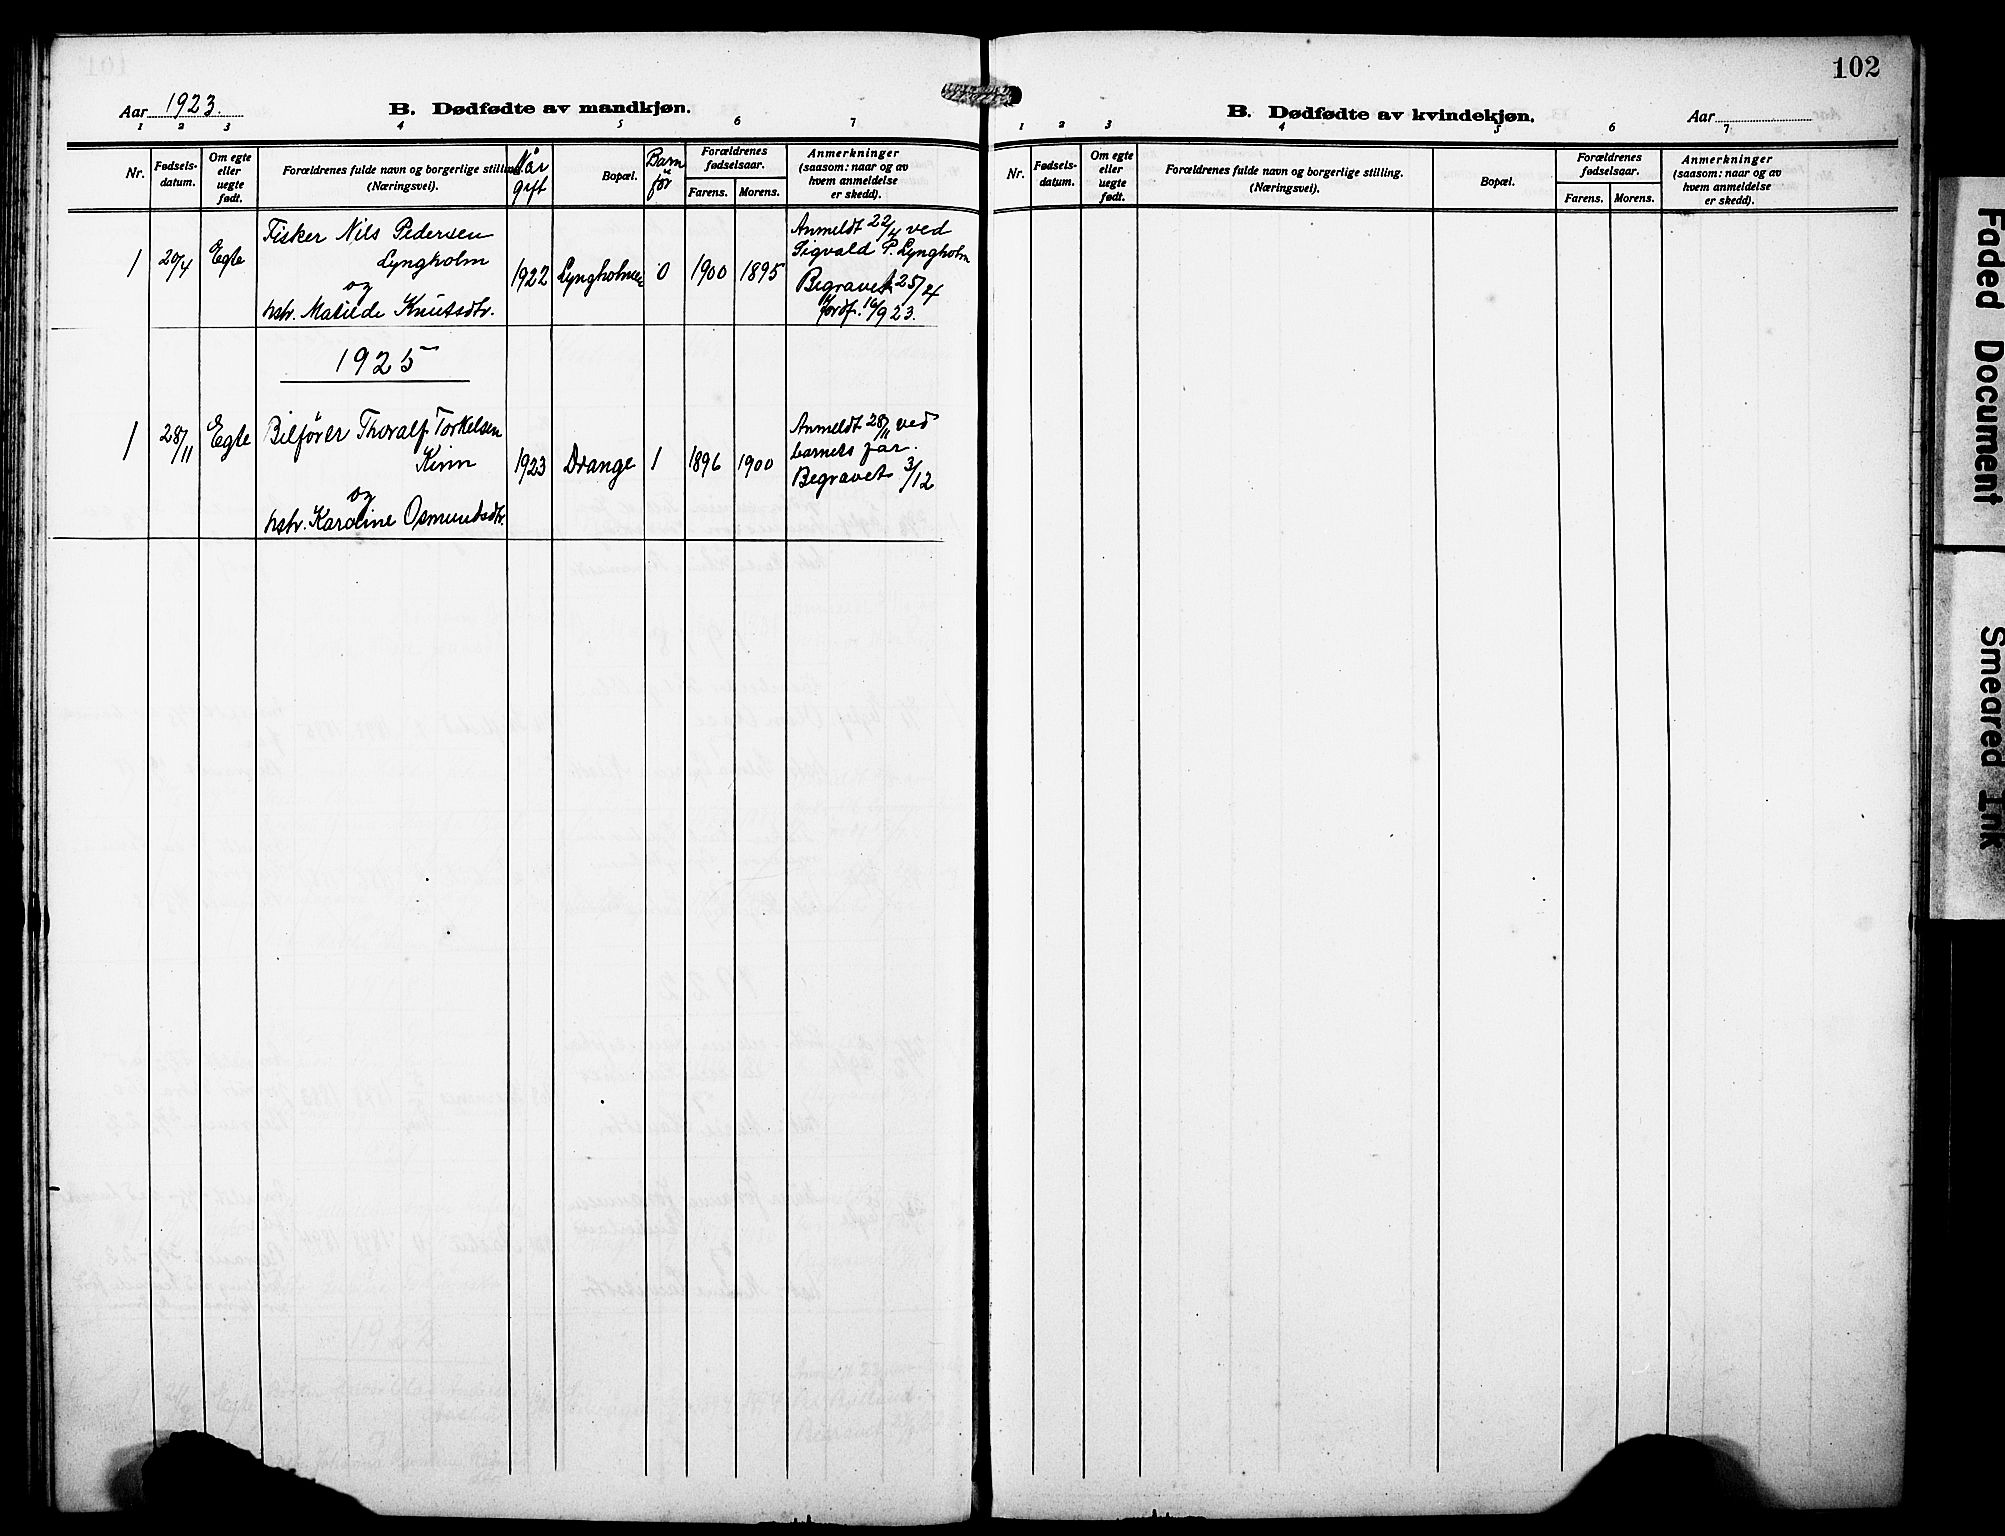 Aar 1923. B. Dødfødte av mandkjøn.
1 2 3 4 5 6 7
Nr. Fødsels-datum. Om egte eller uegte født. Forældrenes fulde navn og borgerlige stilling (Næringsvei). Når gift Bopæl. Barn før Forældrenes fødselsaar. Farens. Morens. Anmerkninger (saasom: naar og av hvem anmeldelse er skedd).
Fisker Nils Pedersen Anmeldt 22/4 ved
1 20/4 Egte Lyngholm 1922 Lyngholmen 0 1900 1895 Sigvald P. Lyngholm
og Begravet 25/4
hstr. Matilde Knutsdtr. Jordf. 16/9 23.
1925
1 28/11 Egte Bilfører Thoralf Torkelsen Anmeldt 28/11 ved
Kinn 1923 Drange 1 1896 1900 barnets far.
og Begravet 3/12
hstr. Karoline Osmundsdtr.
102
B. Dødfødte av kvindekjøn. Aar
1 2 3 4 5 6 7
Nr. Fødsels-datum. Om egte eller uegte født. Forældrenes fulde navn og borgerlige stilling. (Næringsvei). Bopæl. Forældrenes fødselsaar. Farens. Morens. Anmerkninger (saasom: naar og av hvem anmeldelse er skedd).
Faded Document
Smeared Ink